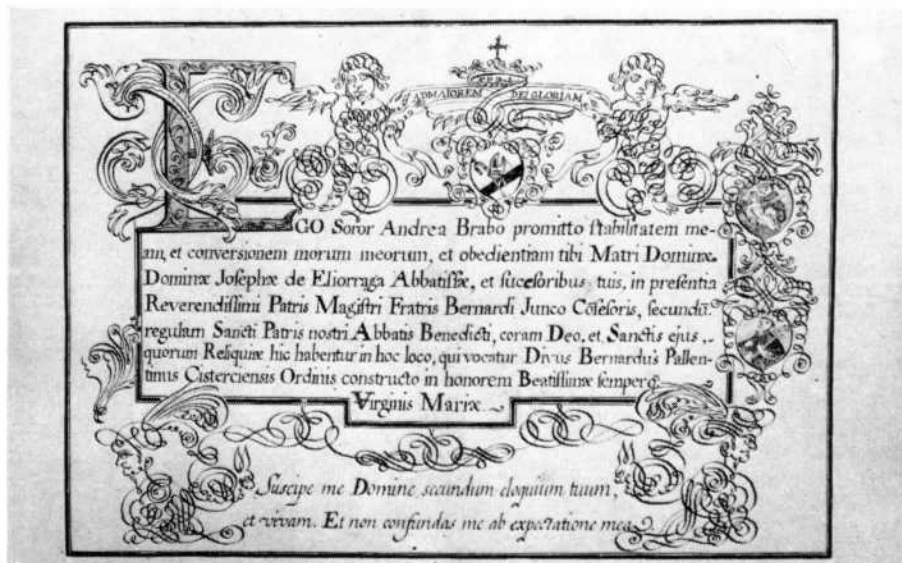 AD MAIOREM DEI GLORIAM
EGO Soror Andrea Brabo promitto ſtabilitatem me-
am, et conversionem morum meorum, et obedientiam tibi Matri Dominæ
Dominæ Joſephæ de Eliorraga Abbatiſſæ, et ſuceſoribus tuis, in preſentia
Reverendiſſimi Patris Magiſtri Fratris Bernardi Junco Cõfeſoris, ſecundũ
regulam Sancti Patris noſtri Abbatis Benedicti, coram Deo, et Sanctis ejus,
quorum Reliquiæ hic habentur in hoc loco, qui vocatur Divus Bernardus Pallen-
tinus Ciſtercienſis Ordinis conſtructo in honorem Beatiſſimæ ſemper q̃
Virginis Mariæ
Suscipe me Domine secundum eloquium tuum,
et vivam. Et non confundas me ab expectatione mea